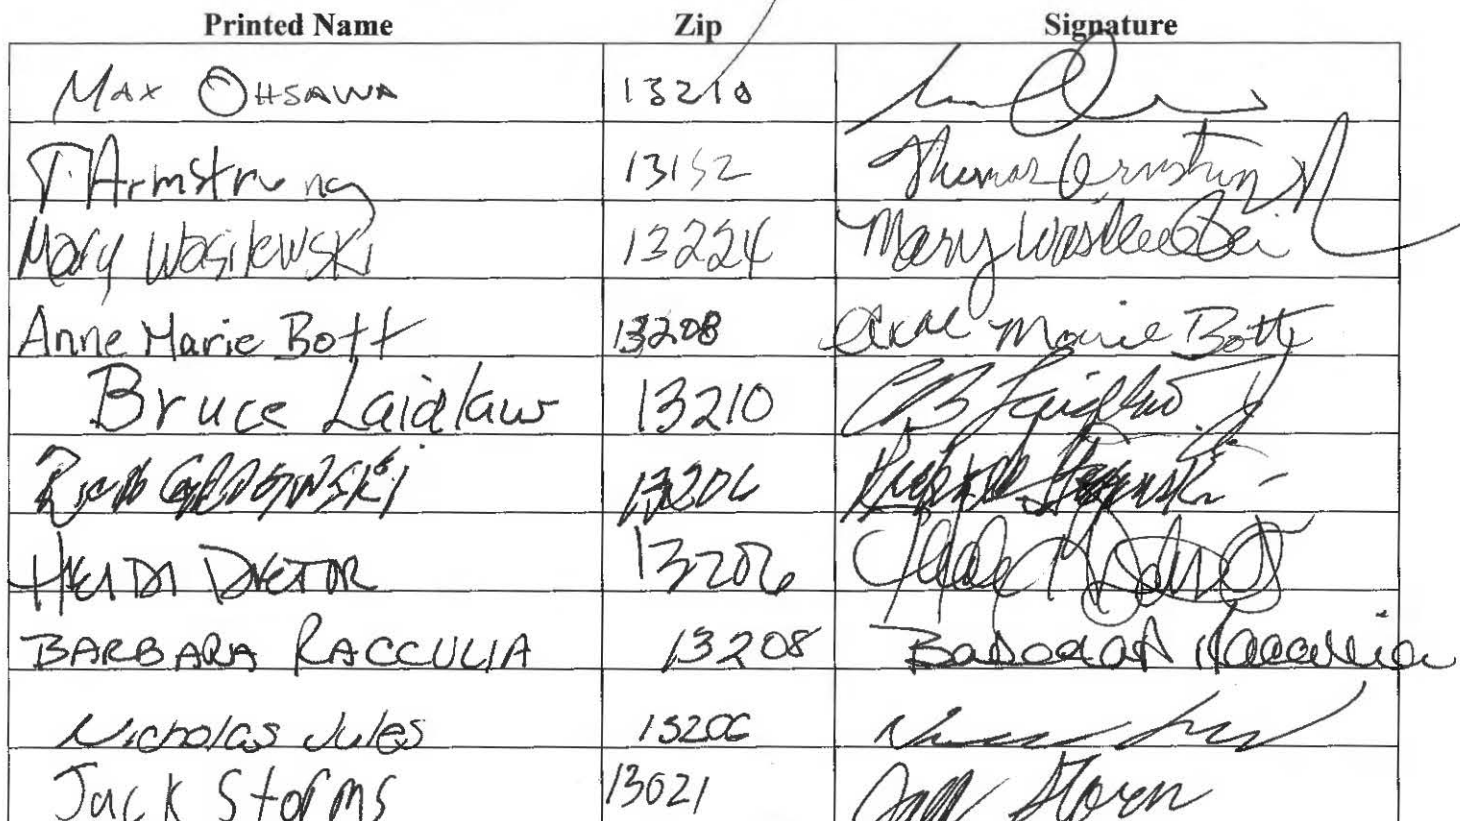 Printed Name Zip Signature
Max Ohsawa 13210
T. Armstrong 13152 Thomas Armstrong
Mary Wasilewski 13224 Mary Wasilewski
Anne Marie Bott 13208 Anne Marie Bott
Bruce Laidlaw 13210 CB Laidlaw
13206
Heidi 13206
BARBARA RACCULIA 13208 Barbara Racculia
Nicholas Jules 13206
Jack Storms 13021 Jack Storms